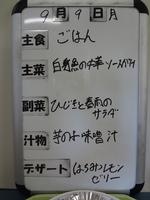 9月9日月
主食 ごはん
主菜 白身魚の中華ソースかけ
副菜 ひじきと春雨の
サラダ
汁物 芋のみそ味噌汁
デザート はちみつレモン
ゼリー